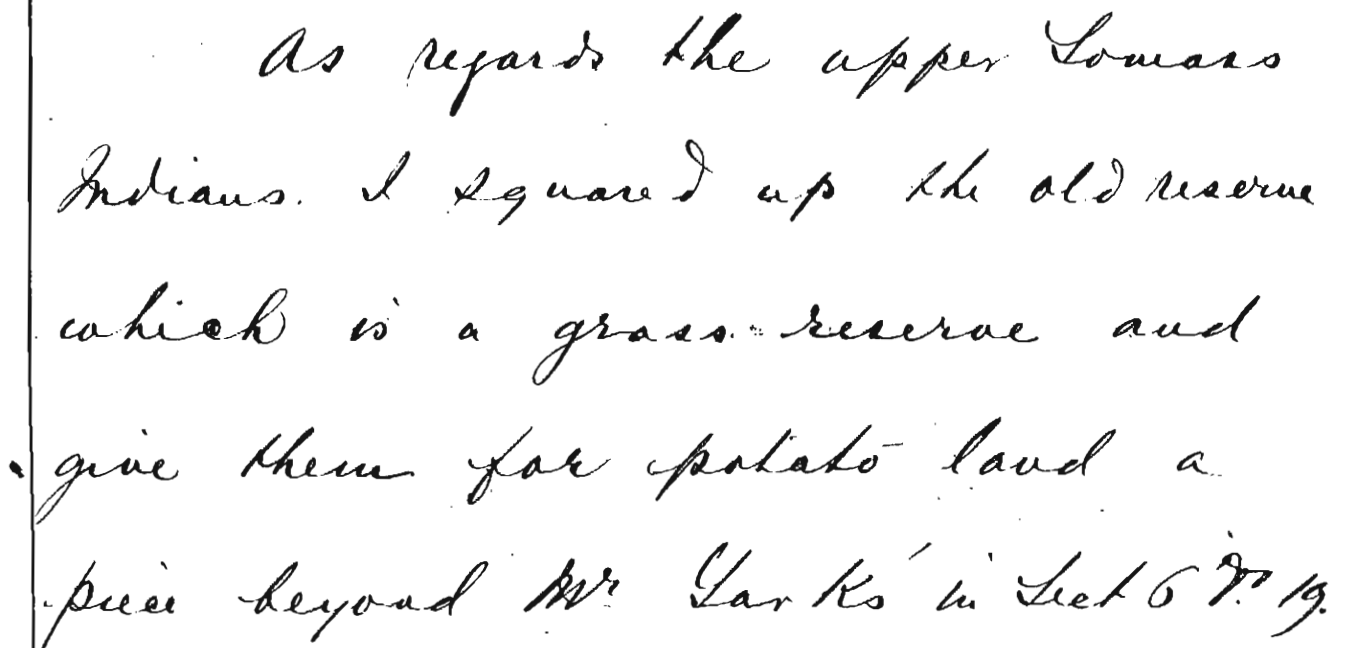 As regards the upper Somass
Indians. I squared up the old reserve
which is a grass reserve and
give them for potato land a
piece beyond Mr in Sect 6 19.